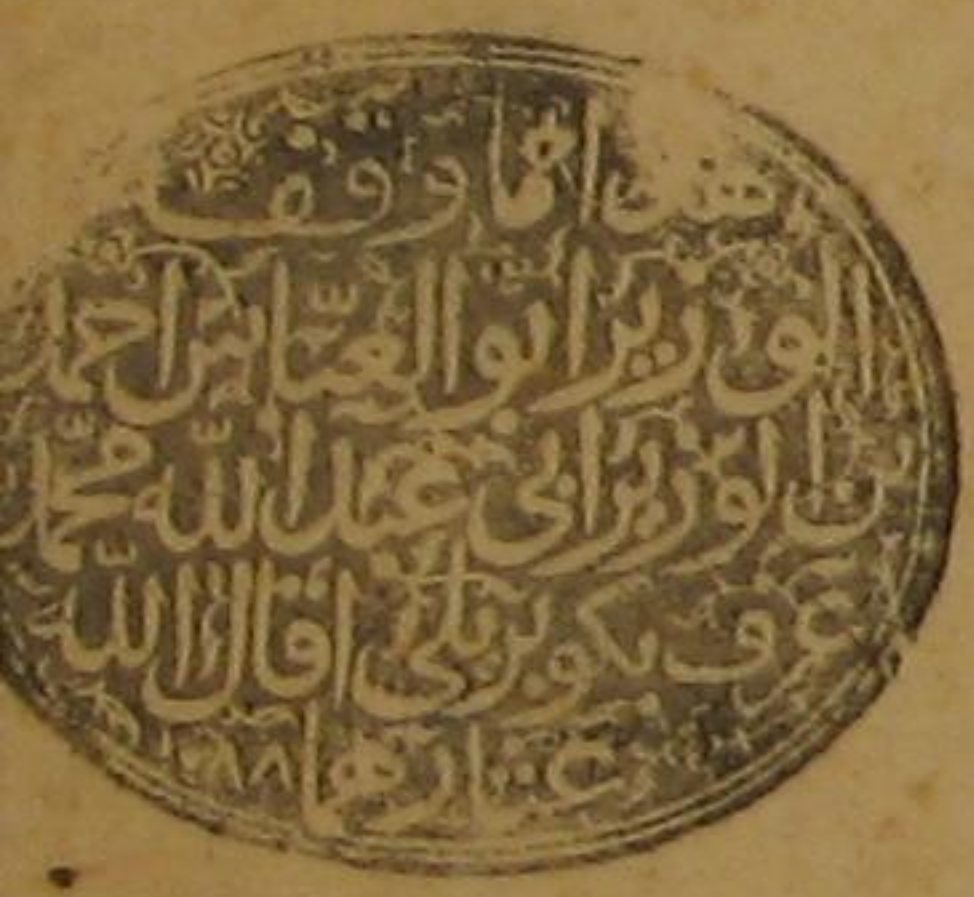 هذا ما وقف
الوزير ابو العباس احمد
بن الوزير ابي عبد الله محمد
عرف بكوبريلي اقال الله
عثارهما ١٠٨٨